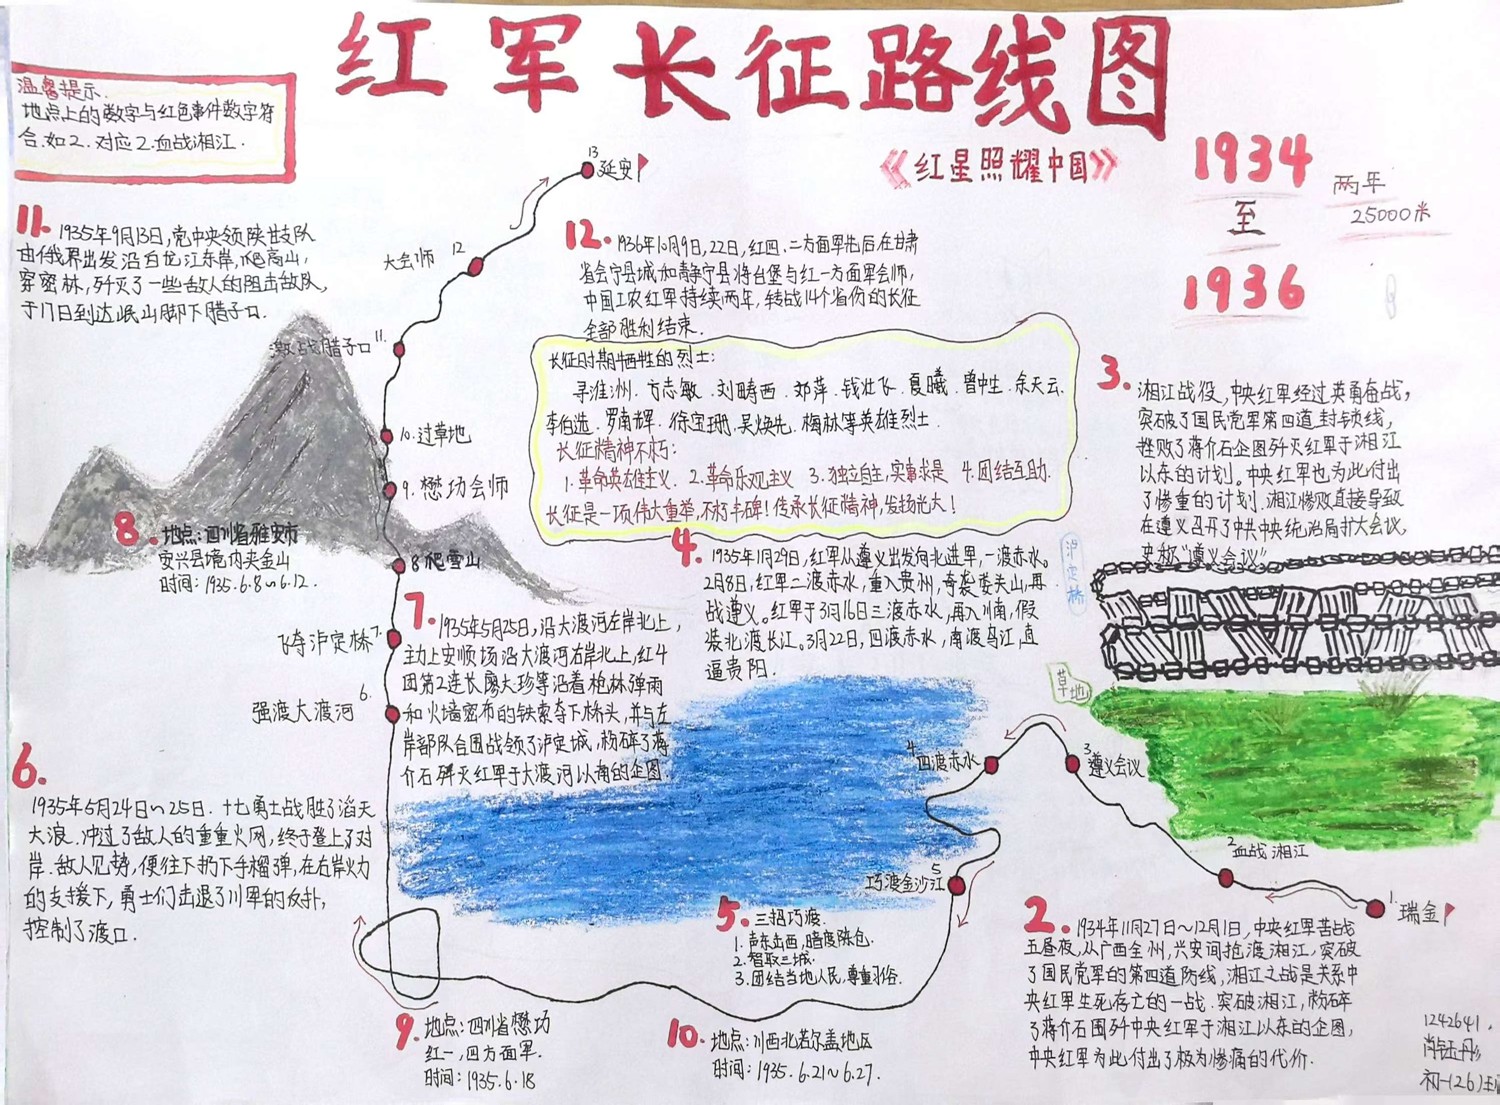 红军长征路线图
《红星照耀中国》
1934
至
1936
两年
25000米
温馨提示
地点上的数字与红色事件数字符
合.如2.对应2.血战湘江.
13
延安
大会师 12
激战腊子口 11.
10.过草地
9.懋功会师
8爬雪山
飞夺泸定桥 7.
强渡大渡河 6.
4 四渡赤水
3 遵义会议
2 血战湘江
1.瑞金
巧渡金沙江 5
泸定桥
草地
11. 1935年9月13日,党中央领陕甘支队
由俄界出发沿白龙江东岸,爬高山,
穿密林,歼灭了一些敌人的阻击敌队,
于门日到达岷山脚下腊子口.
12. 1936年10月9日,22日,红四.二方面军先后在甘肃
省会宁县城和静宁县将台堡与红一方面军会师,
中国工农红军持续两年,转战14个省份的长征
全部胜利结束.
长征时期牺牲的烈士:
寻淮洲.方志敏.刘畴西.邓萍.钱壮飞.夏曦.曾中生.余天云.
李伯选.罗南辉.徐宝珊.吴焕先.梅林等英雄烈士.
长征精神不朽:
1.革命英雄主义. 2.革命乐观主义 3.独立自主,实事求是 4.团结互助.
长征是一项伟大重举,不朽丰碑!传承长征精神,发扬光大!
3. 湘江战役,中央红军经过英勇奋战,
突破了国民党军第四道封锁线,
挫败了蒋介石企图歼灭红军于湘江
以东的计划.中央红军也为此付出
了惨重的计划.湘江惨败直接导致
在遵义召开了中共中央统治局扩大会议,
史称"遵义会议"
8. 地点:四川省雅安市
安兴县境内夹金山
时间:1935.6.8~6.12.
4. 1935年1月29日,红军从遵义出发向北进军,一渡赤水。
2月8日,红军二渡赤水,重入贵州,奇袭娄关山,再
战遵义。红军于3月16日三渡赤水,再入川南,假
装北渡长江。3月22日,四渡赤水,南渡乌江,直
逼贵阳.
7. 1935年5月25日,沿大渡河左岸北上,
主动上安顺场沿大渡河右岸北上,红4
团第2连长廖大珍等沿着枪林弹雨
和火墙密布的铁索夺下桥头,并与左
岸部队合围战领了泸定城,粉碎了蒋
介石歼灭红军于大渡河以南的企图
6.
1935年5月24日~25日.十七勇士战胜了滔天
大浪.冲过了敌人的重重火网,终于登上了对
岸.敌人见势,便往下扔下手榴弹,在右岸火力
的支援下,勇士们击退了川军的反扑,
控制了渡口.
5. 三招巧渡.
1.声东击西,暗度陈仓.
2.智取三城.
3.团结当地人民,尊重习俗.
2. 1934年11月27日~12月1日,中央红军苦战
五昼夜,从广西全州,兴安间抢渡湘江,突破
了国民党军的第四道防线,湘江之战是关系中
央红军生死存亡的一战.突破湘江,粉碎
了蒋介石围歼中央红军于湘江以东的企图,
中央红军为此付出了极为惨痛的代价.
9. 地点:四川省懋功
红一,四方面军.
时间:1935.6.18
10. 地点:川西北若尔盖地区
时间:1935.6.21~6.27.
1242641.
初一(26)